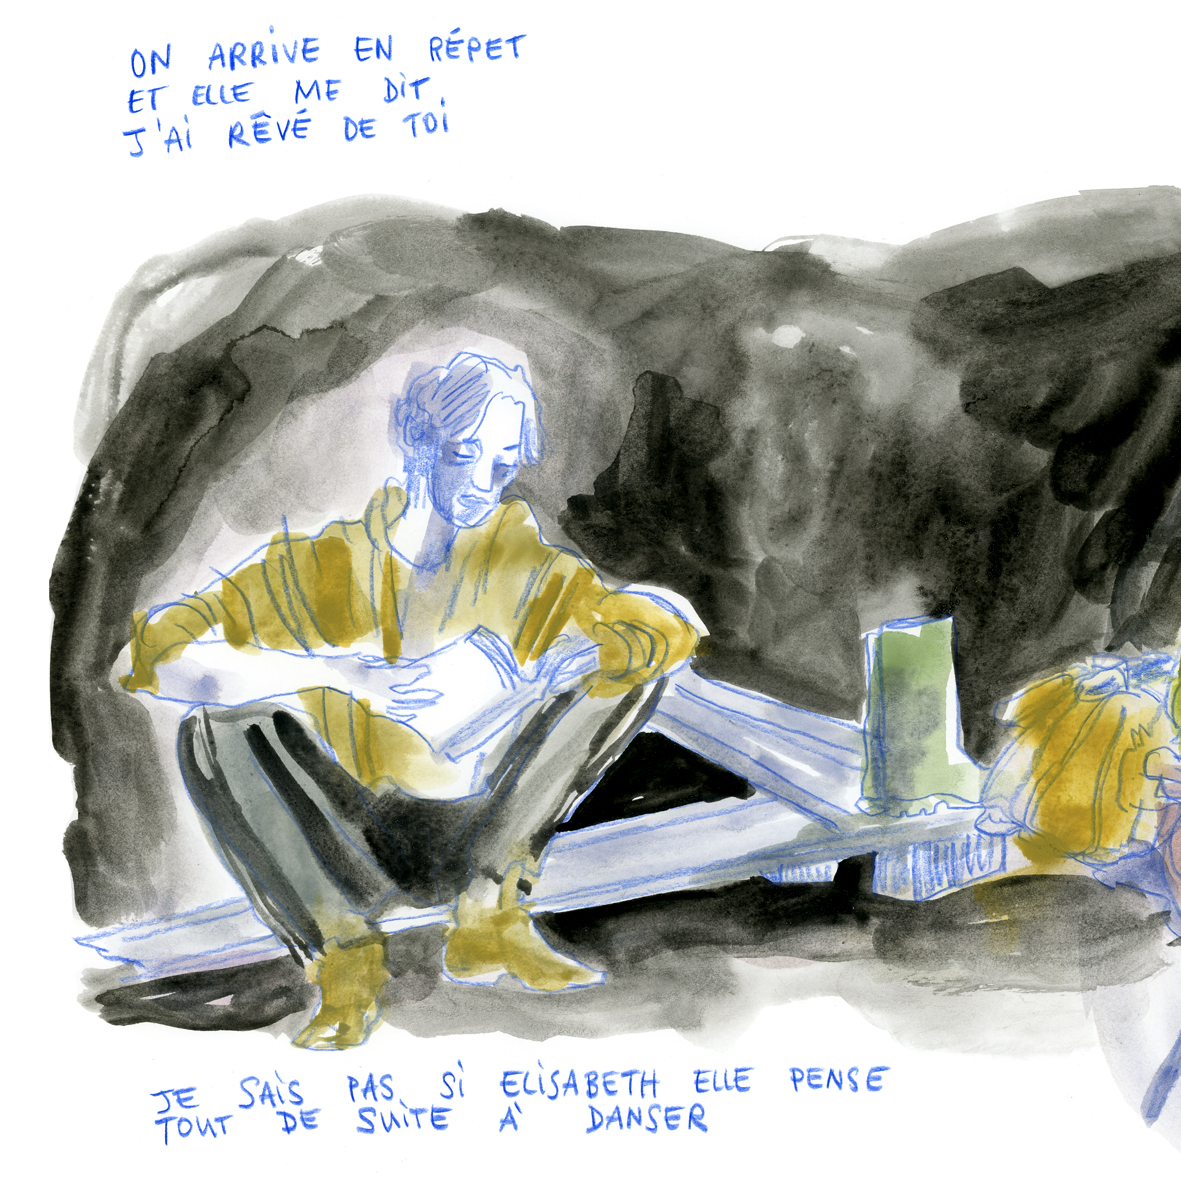 ON ARRIVE EN RÉPET
ET ELLE ME DIT
J'AI RÊVÉ DE TOI
JE SAIS PAS SI ELISABETH ELLE PENSE
TOUT DE SUITE À DANSER